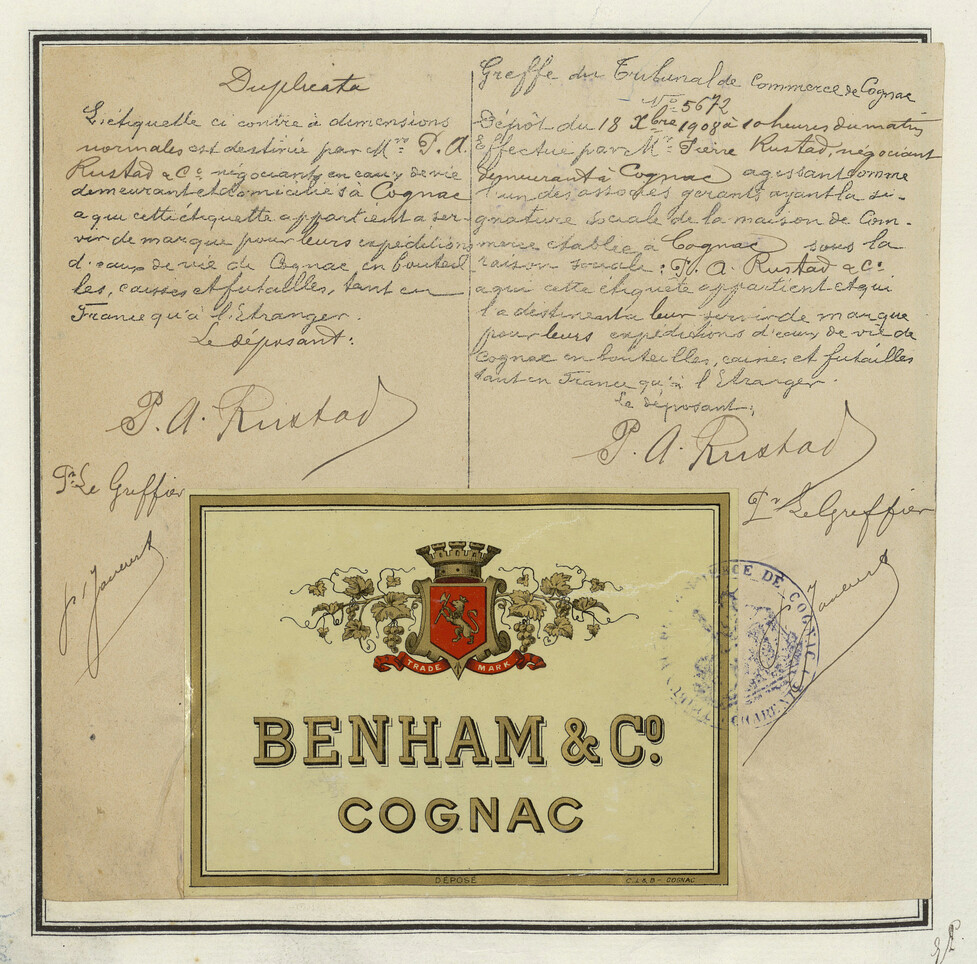 Duplicata
L'étiquette ci contre à dimensions
normales est destinée par Mr. P. A.
Rustad & Co. négociants en eaux de vie
demeurant et domiciliés à Cognac
a qui cette étiquette appartient a ser-
vir de marque pour leurs expéditions
d'eaux de vie de Cognac en bouteil
les, caisses et futailles, tant en
France qu'à l'Etranger.
Le déposant:
P. A. Rustad
Pr Le Greffier
Greffe du Tribunal de Commerce de Cognac
No 5672
Dépôt du 18 Xbre 1908 à 10 heures du matin
Effectué par Mr. Pierre Rustad, négociant
demeurant à Cognac agissant comme
l'un des associés gérants ayant la si-
gnature sociale de la maison de Com-
merce établie à Cognac sous la
raison sociale: P. A. Rustad & Co.
a qui cette étiquette appartient et qui
l'a destinent a leur servir de marque
pour leurs expéditions d'eaux de vie de
Cognac en bouteilles, caisses et futailles
tant en France qu'à l'Etranger.
Le déposant:
P. A. Rustad
Pr Le Greffier
COMMERCE DE COGNAC
CHARENTE
TRADE MARK
BENHAM & Co.
COGNAC
DÉPOSÉ
COGNAC